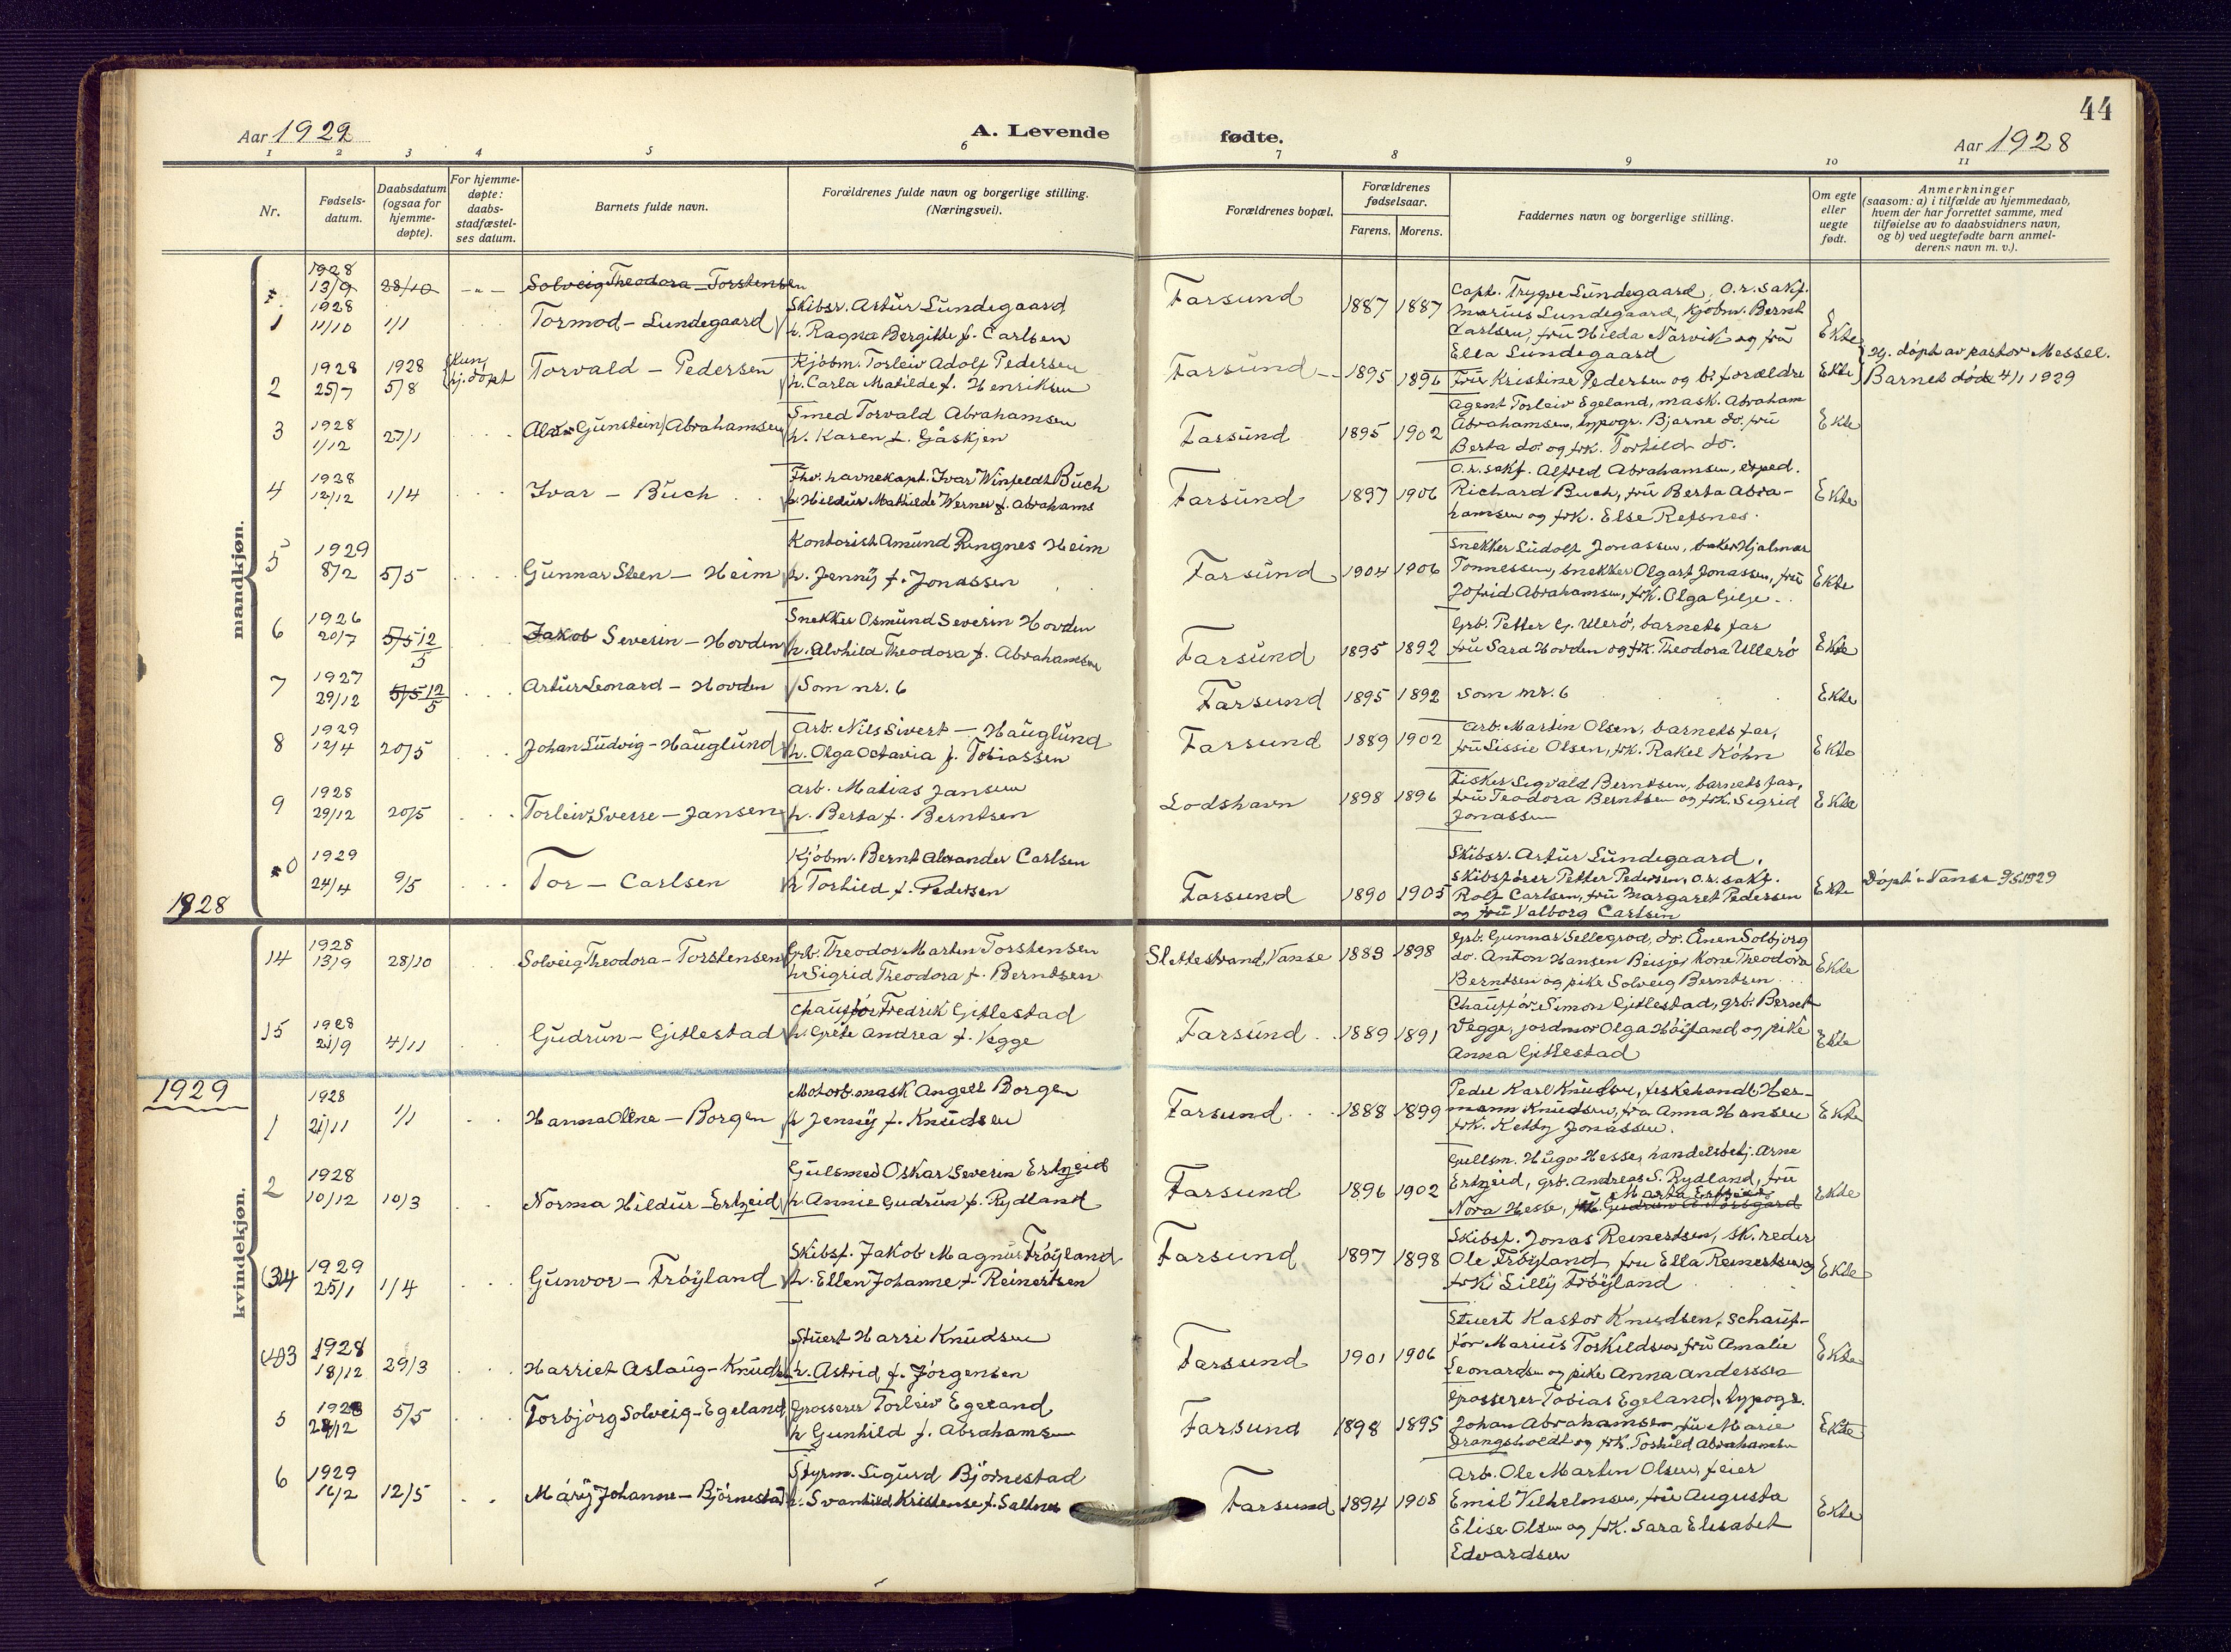 44
Aar 1929
A. Levende
fødte.
Aar 1928
1 2 3 4 5 6 7 8 9 10 11
Nr.
Fødsels-
datum.
Daabsdatum
(ogsaa for
hjemme-
døpte).
For hjemme-
døpte:
daabs-
stadfæstel-
ses datum.
Barnets fulde navn.
Forældrenes fulde navn og borgerlige stilling.
(Næringsvei).
Forældrenes bopæl.
Forældrenes
fødselsaar.
Farens. Morens.
Faddernes navn og borgerlige stilling.
Om egte
eller
uegte
født.
Anmerkninger
(saasom: a) i tilfælde av hjemmedaab,
hvem der har forrettet samme, med
tilføielse av to daabsvidners navn,
og b) ved uegtefødte barn anmel-
derens navn m. v.).
mandkjøn.
1928
13/9 28/10 -"- Solveig Theodora - Torstensen
1
1928
11/10
1/1
Tormod - Lundegaard
Skibsr. Artur Lundegaard
h. Ragna Bergitte f. Carlsen
Farsund
1887 1887
Capt. Trygve Lundegaard, o.r.sakf.
Marius Lundegaard, Kjøbm. Bernt
Carlsen, fru Hilda Narvik og fru
Ella Lundegaard
Ekte
2
1928
25/7
1928
5/8
Kun
hj. døpt
Torvald - Pedersen
Kjøbm. Torleiv Adolf Pedersen
h. Carla Matilde f. Henriksen
Farsund
1895 1896
Fru Kristine Pedersen og b. forældre
Ekte
Hj. døpt av pastor Messel.
Barnet døde 4/1 1929
3
1928
1/12
27/1
Gunstein Abrahamsen
Smed Torvald Abrahamsen
h. Karen f. Gåskjen
Farsund
1895 1902
Agent Torleiv Egeland, mask. Abraham
Abrahamsen, typogr. Bjarne do. fru
Berta do. og frk. Torhild do.
Ekte
4
1928
12/12
1/4
Ivar - Buch
Fhv. havnekapt. Ivar Winfeldt Buch
h. Hildur Mathilde Werner f. Abrahams
Farsund
1897 1906
O.r.sakf. Alfred Abrahamsen, exped.
Richard Buch, fru Berta Abra-
hamsen og frk. Else Refsnes.
Ekte
5
1929
8/2
5/5
Gunnar Steen - Heim
Kontorist Amund Ringnes Heim
h. Jenny f. Jonassen
Farsund
1904 1906
Snekker Ludolf Jonassen, baker Hjalmar
Tønnessen, snekker Olgart Jonassen, fru
Jofrid Abrahamsen, frk. Olga Gilje
Ekte
6
1926
20/7
5/5 12/5
Jakob Severin - Hovden
Snekker Osmund Severin Hovden
h. Alvhild Theodora f. Abrahamsen
Farsund
1895 1892
Grb. Petter G. Ullerø, barnets far
fru Sara Hovden og frk. Theodora Ullerø
Ekte
7
1927
29/12
5/5 12/5
Artur Leonard - Hovden
Som nr. 6
Farsund
1895 1892
Som nr. 6
Ekte
8
1929
12/4
20/5
Johan Ludvig - Hauglund
Arb. Nils Sivert - Hauglund
h. Olga Octavia f. Tobiassen
Farsund
1889 1902
Arb. Martin Olsen, barnets far,
fru Lissie Olsen, frk. Rakel Køhn
Ekte
9
1928
29/12
20/5
Torleiv Sverre - Jansen
Arb. Matias Jansen
h. Berta f. Berntsen
Lodshavn
1898 1896
Fisker Sigvald Berntsen, barnets far,
fru Teodora Berntsen og frk. Sigrid
Jonassen
Ekte
10
1929
24/4
9/5
Tor - Carlsen
Kjøbm. Bernt Alexander Carlsen
h Torhild f. Pedersen
Farsund
1890 1905
Skibsr. Artur Lundegaard,
skibsfører Petter Pedersen, o.r. sakf.
Rolf Carlsen, fru Margaret Pedersen
og fru Valborg Carlsen
Ekte
Døpt i Vanse 9/5 1929
1928
kvindekjøn.
14
1928
13/9
28/10
Solveig Theodora - Torstensen
Grb. Theodor Martin Torstensen
h Sigrid Theodora f. Berntsen
Slettestrand, Vanse
1883 1898
Grb. Gunnar Sellegrod, do. Ånen Solbjorg
do. Anton Hansen Beisje, Kone Theodora
Berntsen og pike Solveig Berntsen
Ekte
15
1928
21/9
4/11
Gudrun - Gitlestad
Chauffør Fredrik Gitlestad
h. Grete Andrea f. Vegge
Farsund
1889 1891
Chauffør Simon Gitlestad, grb. Bernt
Vegge, jordmor Olga Høiland og pike
Anna Gitlestad
Ekte
1929
1
1928
21/11
1/1
Hanna Oline - Borgen
Motorb.mask Angell Borgen
h Jenny f. Knudsen
Farsund
1888 1899
Peder Karl Knudsen, fiskehandl. Her-
mann Knudsen, fra Anna Hansen
frk. Ketty Jonassen.
Ekte
2
1928
10/12
10/3
Norma Hildur - Ertzeid
Gulsmed Oskar Severin Ertzeid
h Annie Gudrun f. Rydland
Farsund
1896 1902
Gullsm. Hugo Hesse, handelsbetj. Arne
Ertzeid, grb. Andreas S. Rydland, fru
Marta Ertzeid
Nora Hesse, frk. Gudrun
Ekte
(3)4
1929
25/1
1/4
Gunvor - Frøyland
Skibsf. Jakob Magnus Frøyland
h. Ellen Johanne f. Reinertsen
Farsund
1897 1898
Skibsf. Jonas Reinertsen, sk.reder
Ole Frøyland, fru Ella Reinertsen og
frk. Lilly Frøyland
Ekte
(4)3
1928
18/12
29/3
Harriet Aslaug - Knudsen
Stuert Harri Knudsen
h. Astrid f. Jørgensen
Farsund
1901 1906
Stuert Kastor Knudsen, schauf-
før Marius Torkildsen, fru Amalie
Leonardsen og pike Anna Anderssen
Ekte
5
1928
28/12
5/5
Torbjørg Solveig - Egeland
Grosserer Torleiv Egeland
h Gunhild f. Abrahamsen
Farsund
1898 1895
Grosserer Tobias Egeland, typogr.
Johan Abrahamsen, fru Marie
Drangsholdt og frk. Torhild Abrahamsen
Ekte
6
1929
16/2
12/5
Máry Johanne - Bjørnestad
Styrm. Sigurd Bjørnestad
h. Svanhild Kristense f. Saltnes
Farsund
1894 1908
Arb. Ole Martin Olsen, feier
Emil Vilhelmsen, fru Augusta
Elise Olsen og frk. Sara Elisabet
Edvardsen
Ekte